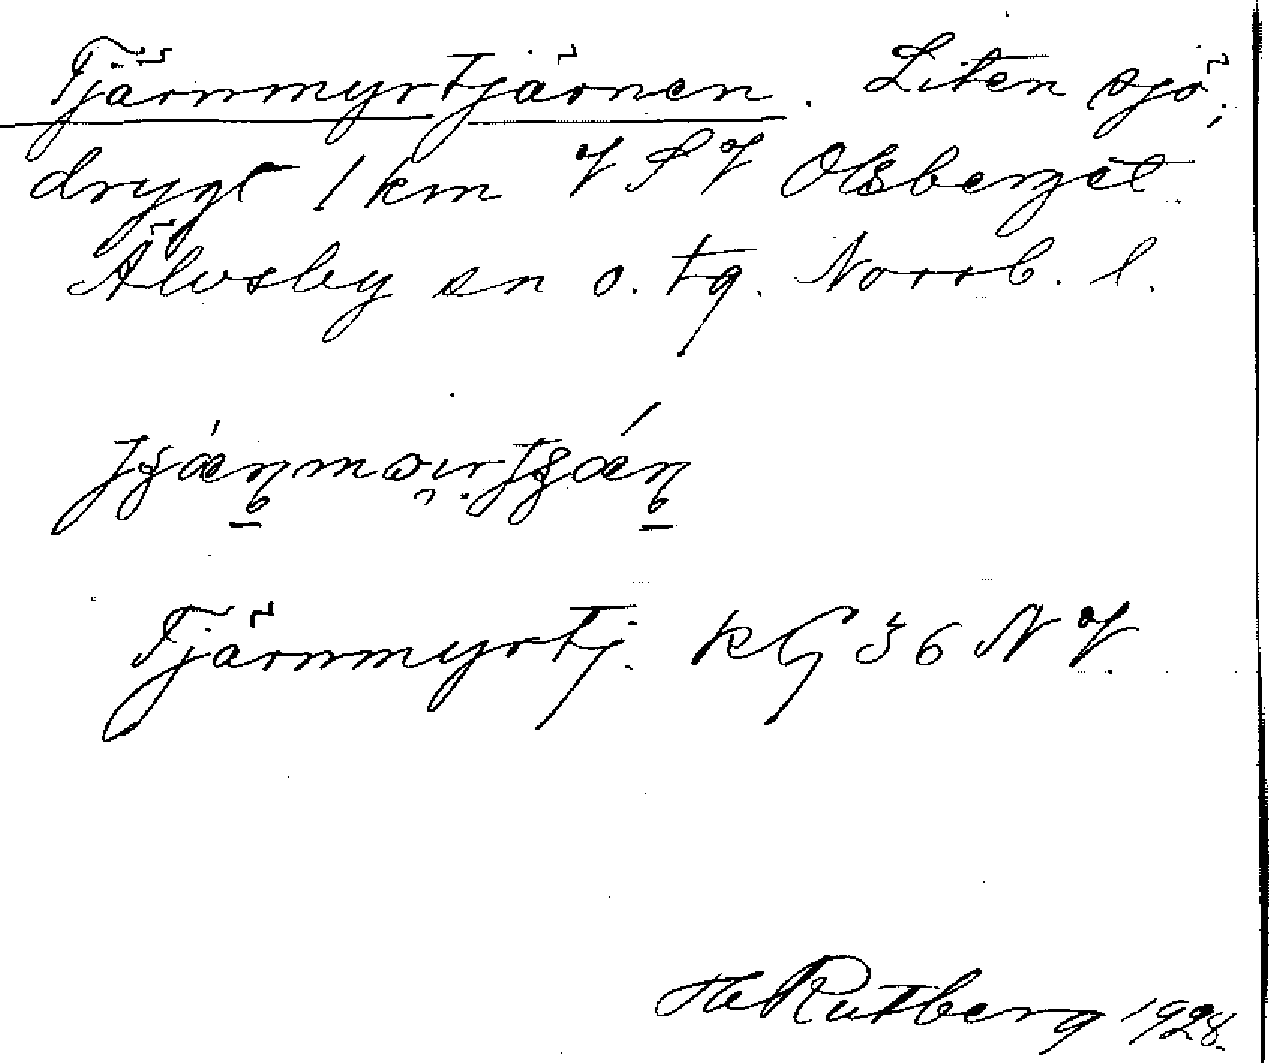 Tjärnmyrtjärnen. Liten sjö,
drygt 1 km VSV Olsberget
Älvsby sn o. tg. Norrb. l.
Tjärnmyrtj. KG 36 NV.
H Rutberg 1928.